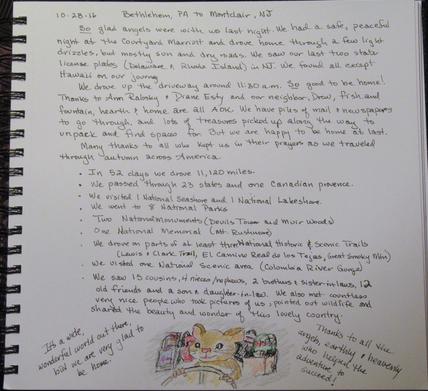 10-28-16 Bethlehem, PA to Montclair, NJ
So glad angels were with us last night. We had a safe, peaceful
night at the Courtyard Marriott and drove home through a few light
drizzles, but mostly sun and dry roads. We saw our last two state
license plates (Delaware & Rhode Island) in NJ. We found all except
Hawaii on our journey.
We drove up the driveway around 11:30 a.m. So good to be home!
Thanks to Ann Ralosky & Diane Esty and our neighbor, Drew, fish and
fountain, hearth & home are all AOK. We have piles of mail & newspapers
to go through, and lots of treasures picked up along the way to
unpack and find spaces for. But we are happy to be home at last.
Many thanks to all who kept us in their prayers as we traveled
through autumn across America.
• In 52 days we drove 11,120 miles.
• We passed through 23 states and one Canadian provence.
• We visited 1 National Seashore and 1 National Lakeshore.
• We went to 8 National Parks
• Two National Monuments (Devils Tower and Muir Woods)
• One National Memorial (Mt. Rushmore)
• We drove on parts of at least three National Historic & Scenic Trails
(Lewis & Clark Trail, El Camino Real de los Tejas, Great Smoky Mtn)
• We visited one National Scenic area (Columbia River Gorge)
• We saw 15 cousins, 4 nieces/nephews, 2 brothers & sister-in-laws, 12
old friends and a son & daughter-in-law. We also met countless
very nice people who took pictures of us, pointed out wildlife and
shared the beauty and wonder of this lovely country.
It's a wide,
wonderful world out there,
but we are very glad to
be home.
Thanks to all the
angels, earthly & heavenly
who helped the
adventure to
succeed!